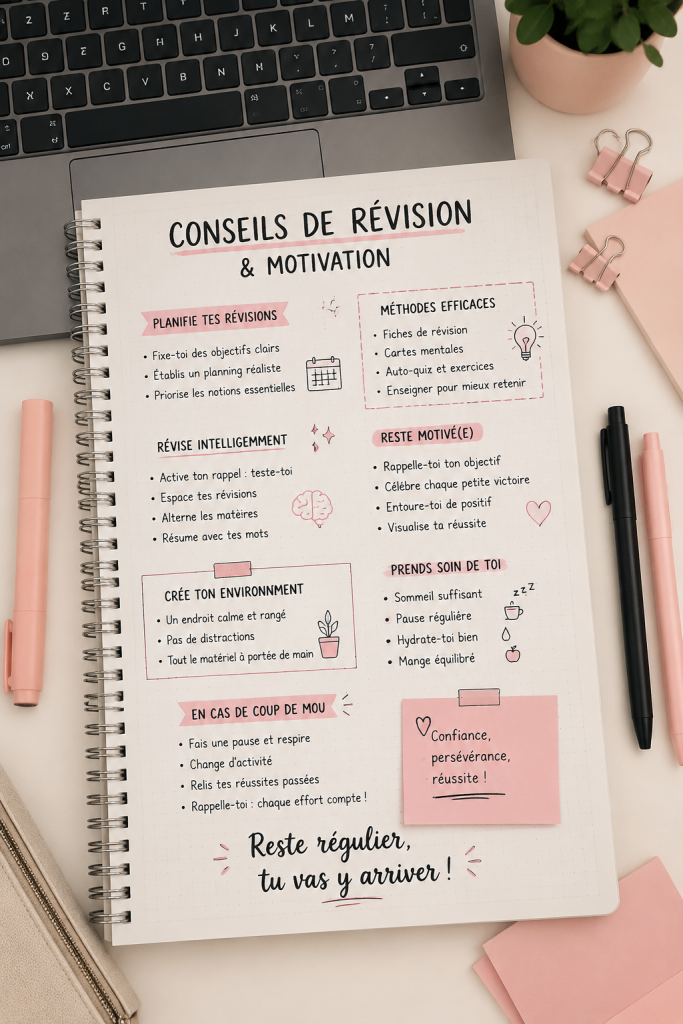 CONSEILS DE RÉVISION
& MOTIVATION
PLANIFIE TES RÉVISIONS
• Fixe-toi des objectifs clairs
• Établis un planning réaliste
• Priorise les notions essentielles
MÉTHODES EFFICACES
• Fiches de révision
• Cartes mentales
• Auto-quiz et exercices
• Enseigner pour mieux retenir
RÉVISE INTELLIGEMMENT
• Active ton rappel : teste-toi
• Espace tes révisions
• Alterne les matèires
• Résume avec tes mots
RESTE MOTIVÉ(E)
• Rappelle-toi ton objectif
• Célèbre chaque petite victoire
• Entoure-toi de positif
• Visualise ta réussite
CRÉE TON ENVIRONNMENT
• Un endroit calme et rangé
• Pas de distractions
• Tout le matériel à portée de main
PRENDS SOIN DE TOI
• Sommeil suffisant
zzz
• Pause régulière
• Hydrate-toi bien
• Mange équilibré
EN CAS DE COUP DE MOU
• Fais une pause et respire
• Change d'activité
• Relis tes réussites passées
• Rappelle-toi : chaque effort compte !
Confiance,
persévérance,
réussite !
Reste régulier,
tu vas y arriver !